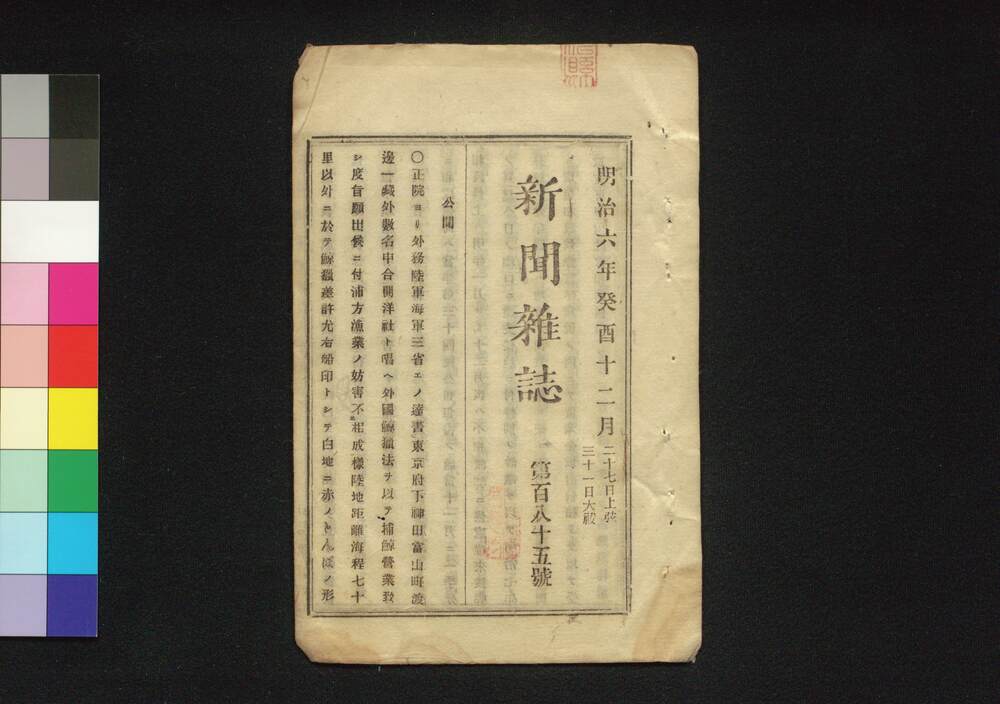 明治六年癸酉十二月
二十七日上弦
三十一日大祓
新聞雜誌
第百八十五號
公聞
〇正院ヨリ外務陸軍海軍三省エノ達書東京府下神田富山町渡
邊一藏外數名申合開洋社ト唱ヘ外國鯨獵法ヲ以テ捕鯨營業致
シ度旨願出候ニ付浦方漁業ノ妨害不相成樣陸地距離海程七十
里以外ニ於テ鯨獵差許尤右船印トシテ白地ニ赤ノとんぼノ形